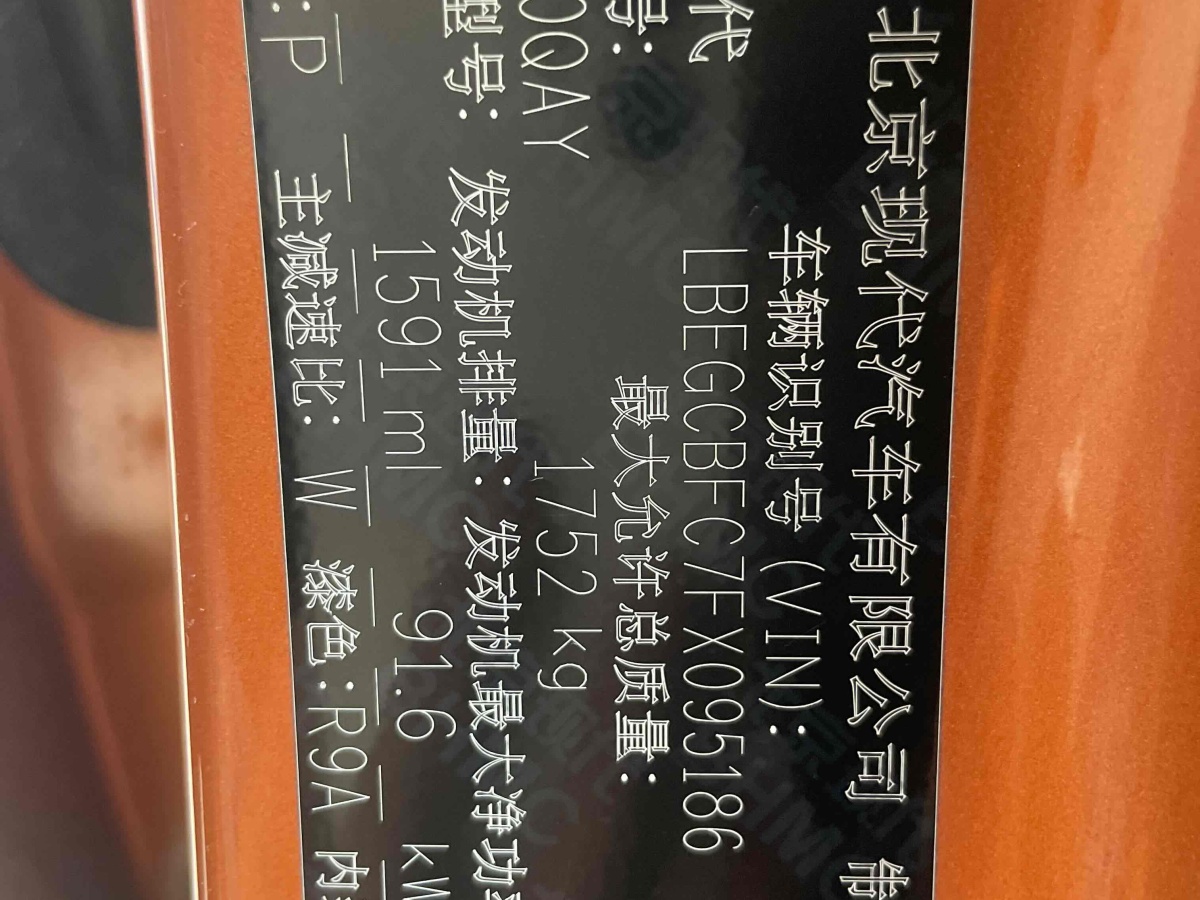 北京现代汽车有限公司
车辆识别号(VIN):
代 LBEGCBFC7FX095186
号: 最大允许总质量:
0QAY 1752 kg
型号: 发动机排量: 发动机最大净功
1591 ml 91.6 kW
:P 主减速比: W 漆色:R9A 内